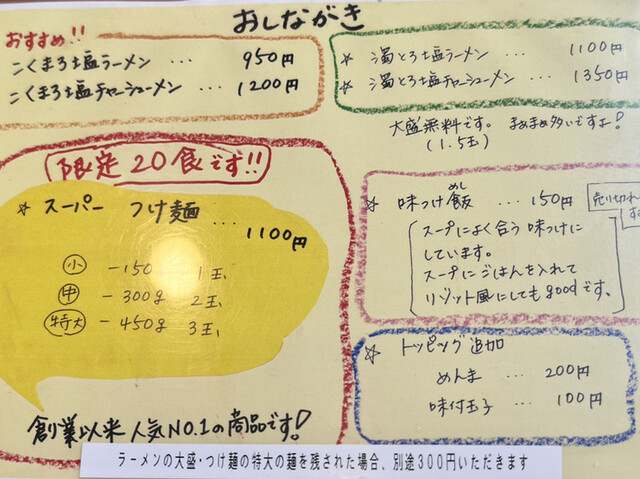 おしながき
おすすめ!!
こくまろ塩ラーメン ... 950円
こくまろ塩チャーシューメン ... 1200円
☆ 濁とろ塩ラーメン ... 1100円
☆ 濁とろ塩チャーシューメン ... 1350円
大盛無料です。まぁまぁ多いですよ!
(1.5玉)
限定20食です!!
☆ スーパー つけ麺 ... 1100円
小 -150 1玉
中 -300g 2玉
特大 -450g 3玉
創業以来人気NO.1の商品です!
☆ 味つけ飯 ... 150円
めし
売り切れ
スープによく合う味つけに
しています。
スープにごはんを入れて
リゾット風にしてもgoodです。
☆ トッピング追加
めんま ... 200円
味付玉子 ... 100円
ラーメンの大盛・つけ麺の特大の麺を残された場合、別途300円いただきます